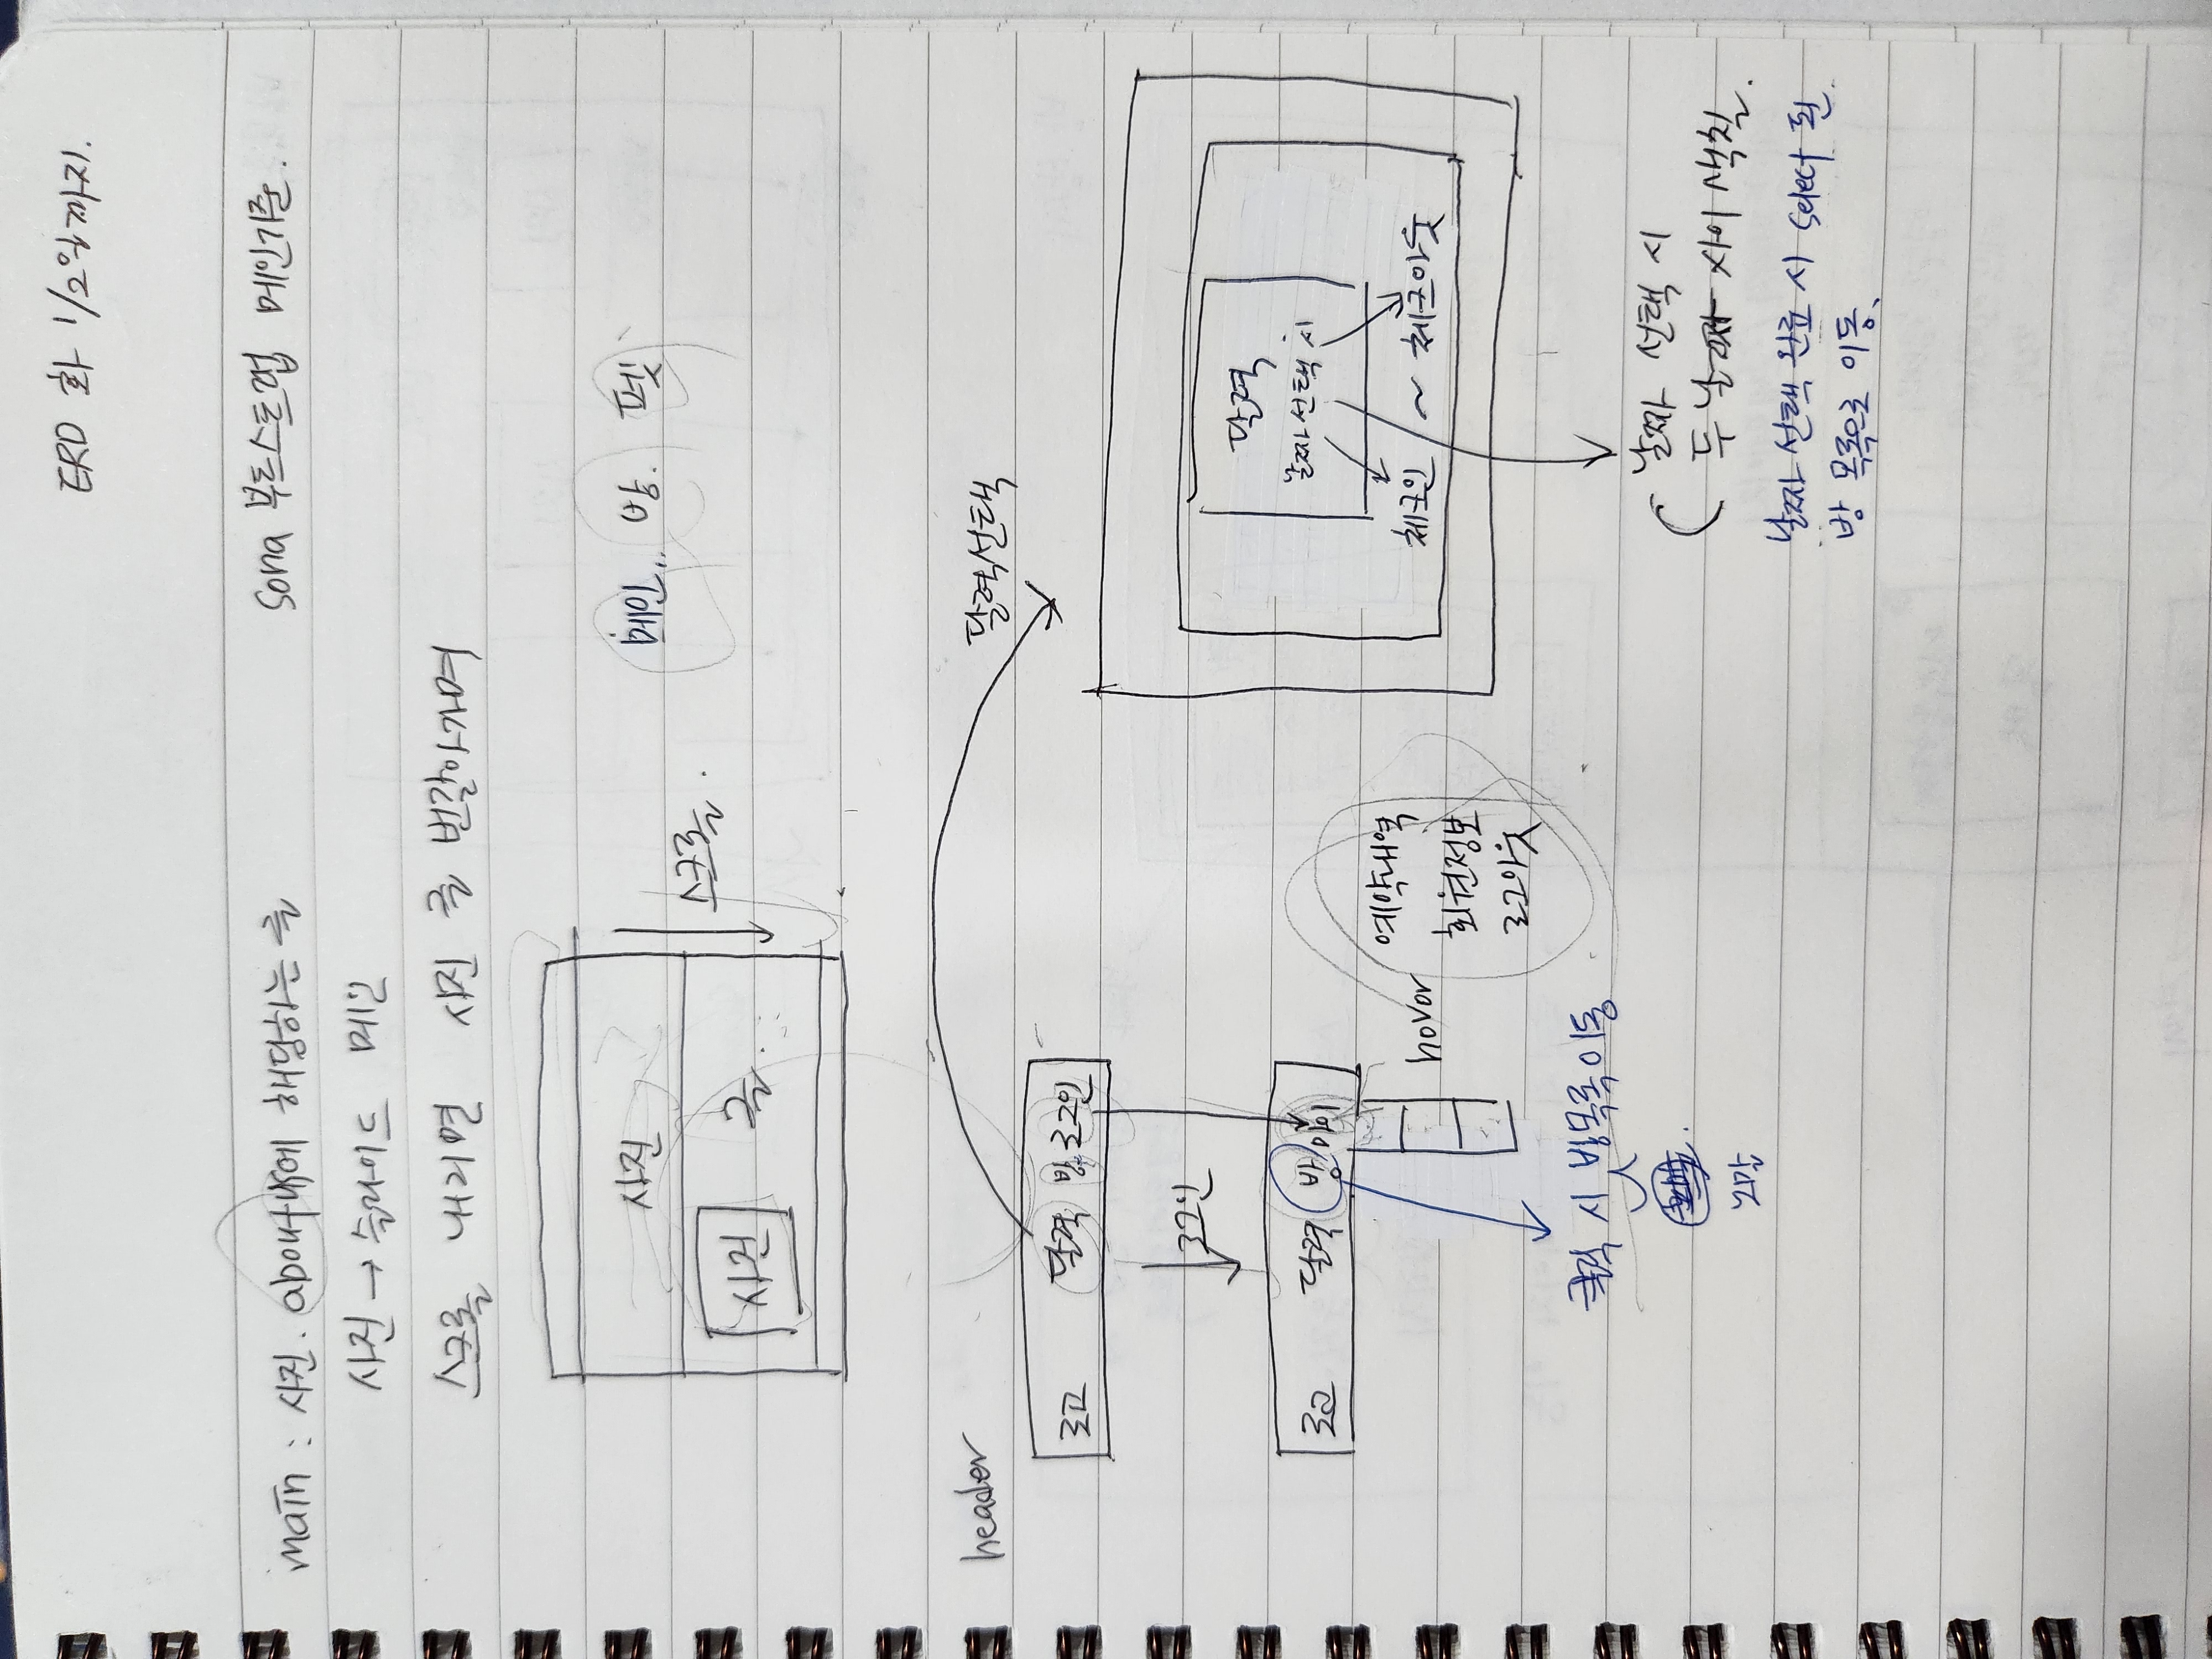 ERD 화 1/2일까지.
main : 사진. aboutus에 해당하는 글
sona 부트스트랩 메인기준.
사진 → 슬라이드 메인
스크롤 내리면 사진 글 번갈아가며
사진
사진 글.
스크롤.
메인.. 방. 펫
header
달력선택
로고 달력 방 로그인
로그인
로고 달력 방 마이
hover
예약내역
회원정보
로그아웃
달력
날짜 선택 시
체크인 ~ 체크아웃
클릭 시 방목록 이동
날짜 선택 시
두 날짜 사이 색칠.
날짜 선택 완료 시 select 된
방 목록으로 이동.